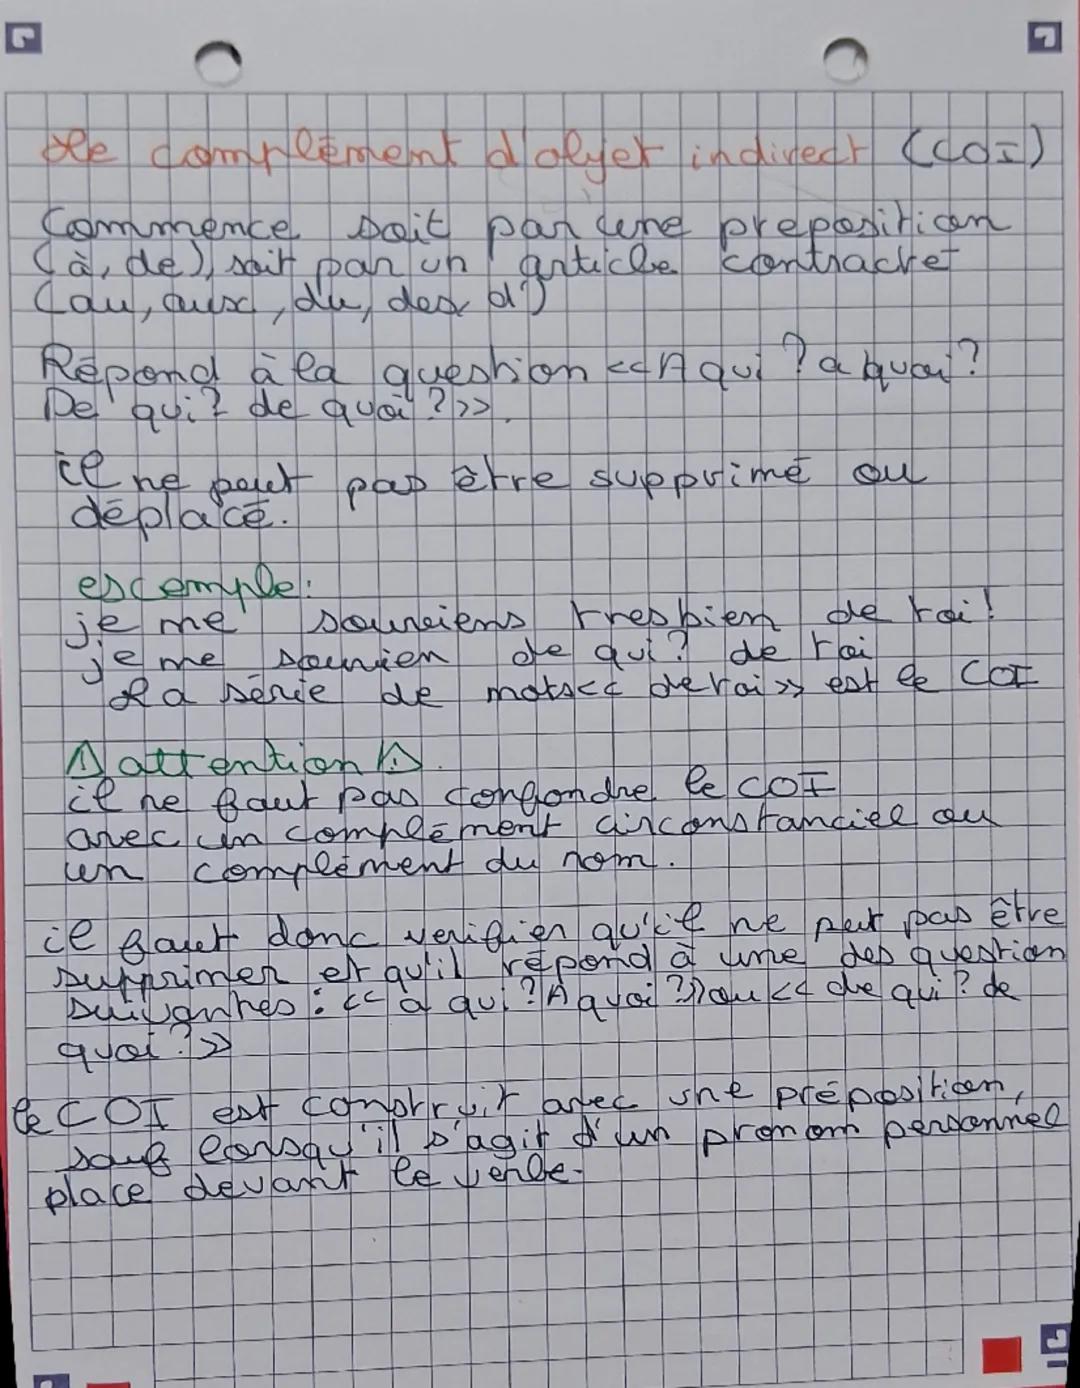 Le complément d'objet indirect (COI)
Commence soit par une preposition
(à, de), soit par un article contractet
(au, aux, du, des, d')
Répond à la question << A qui ? a quoi ?
De qui ? de quoi ? >>.
il ne peut pas être supprimé ou
déplacé.
excemple :
je me souviens tres bien de toi !
je me souvien de qui ? de toi
La série de mots << de toi >> est le COI
⚠ attention ⚠.
il ne faut pas confondre le COI
avec un complément circonstanciel ou
un complément du nom.
il faut donc verifier qu'il ne peut pas être
supprimer et qu'il répond à une des question
suivantes : << a qui ? A quoi ? >> ou << de qui ? de
quoi ? >>
le COI est construit avec une préposition,
sauf lorsqu'il s'agit d'un pronom personnel
place devant le verbe.